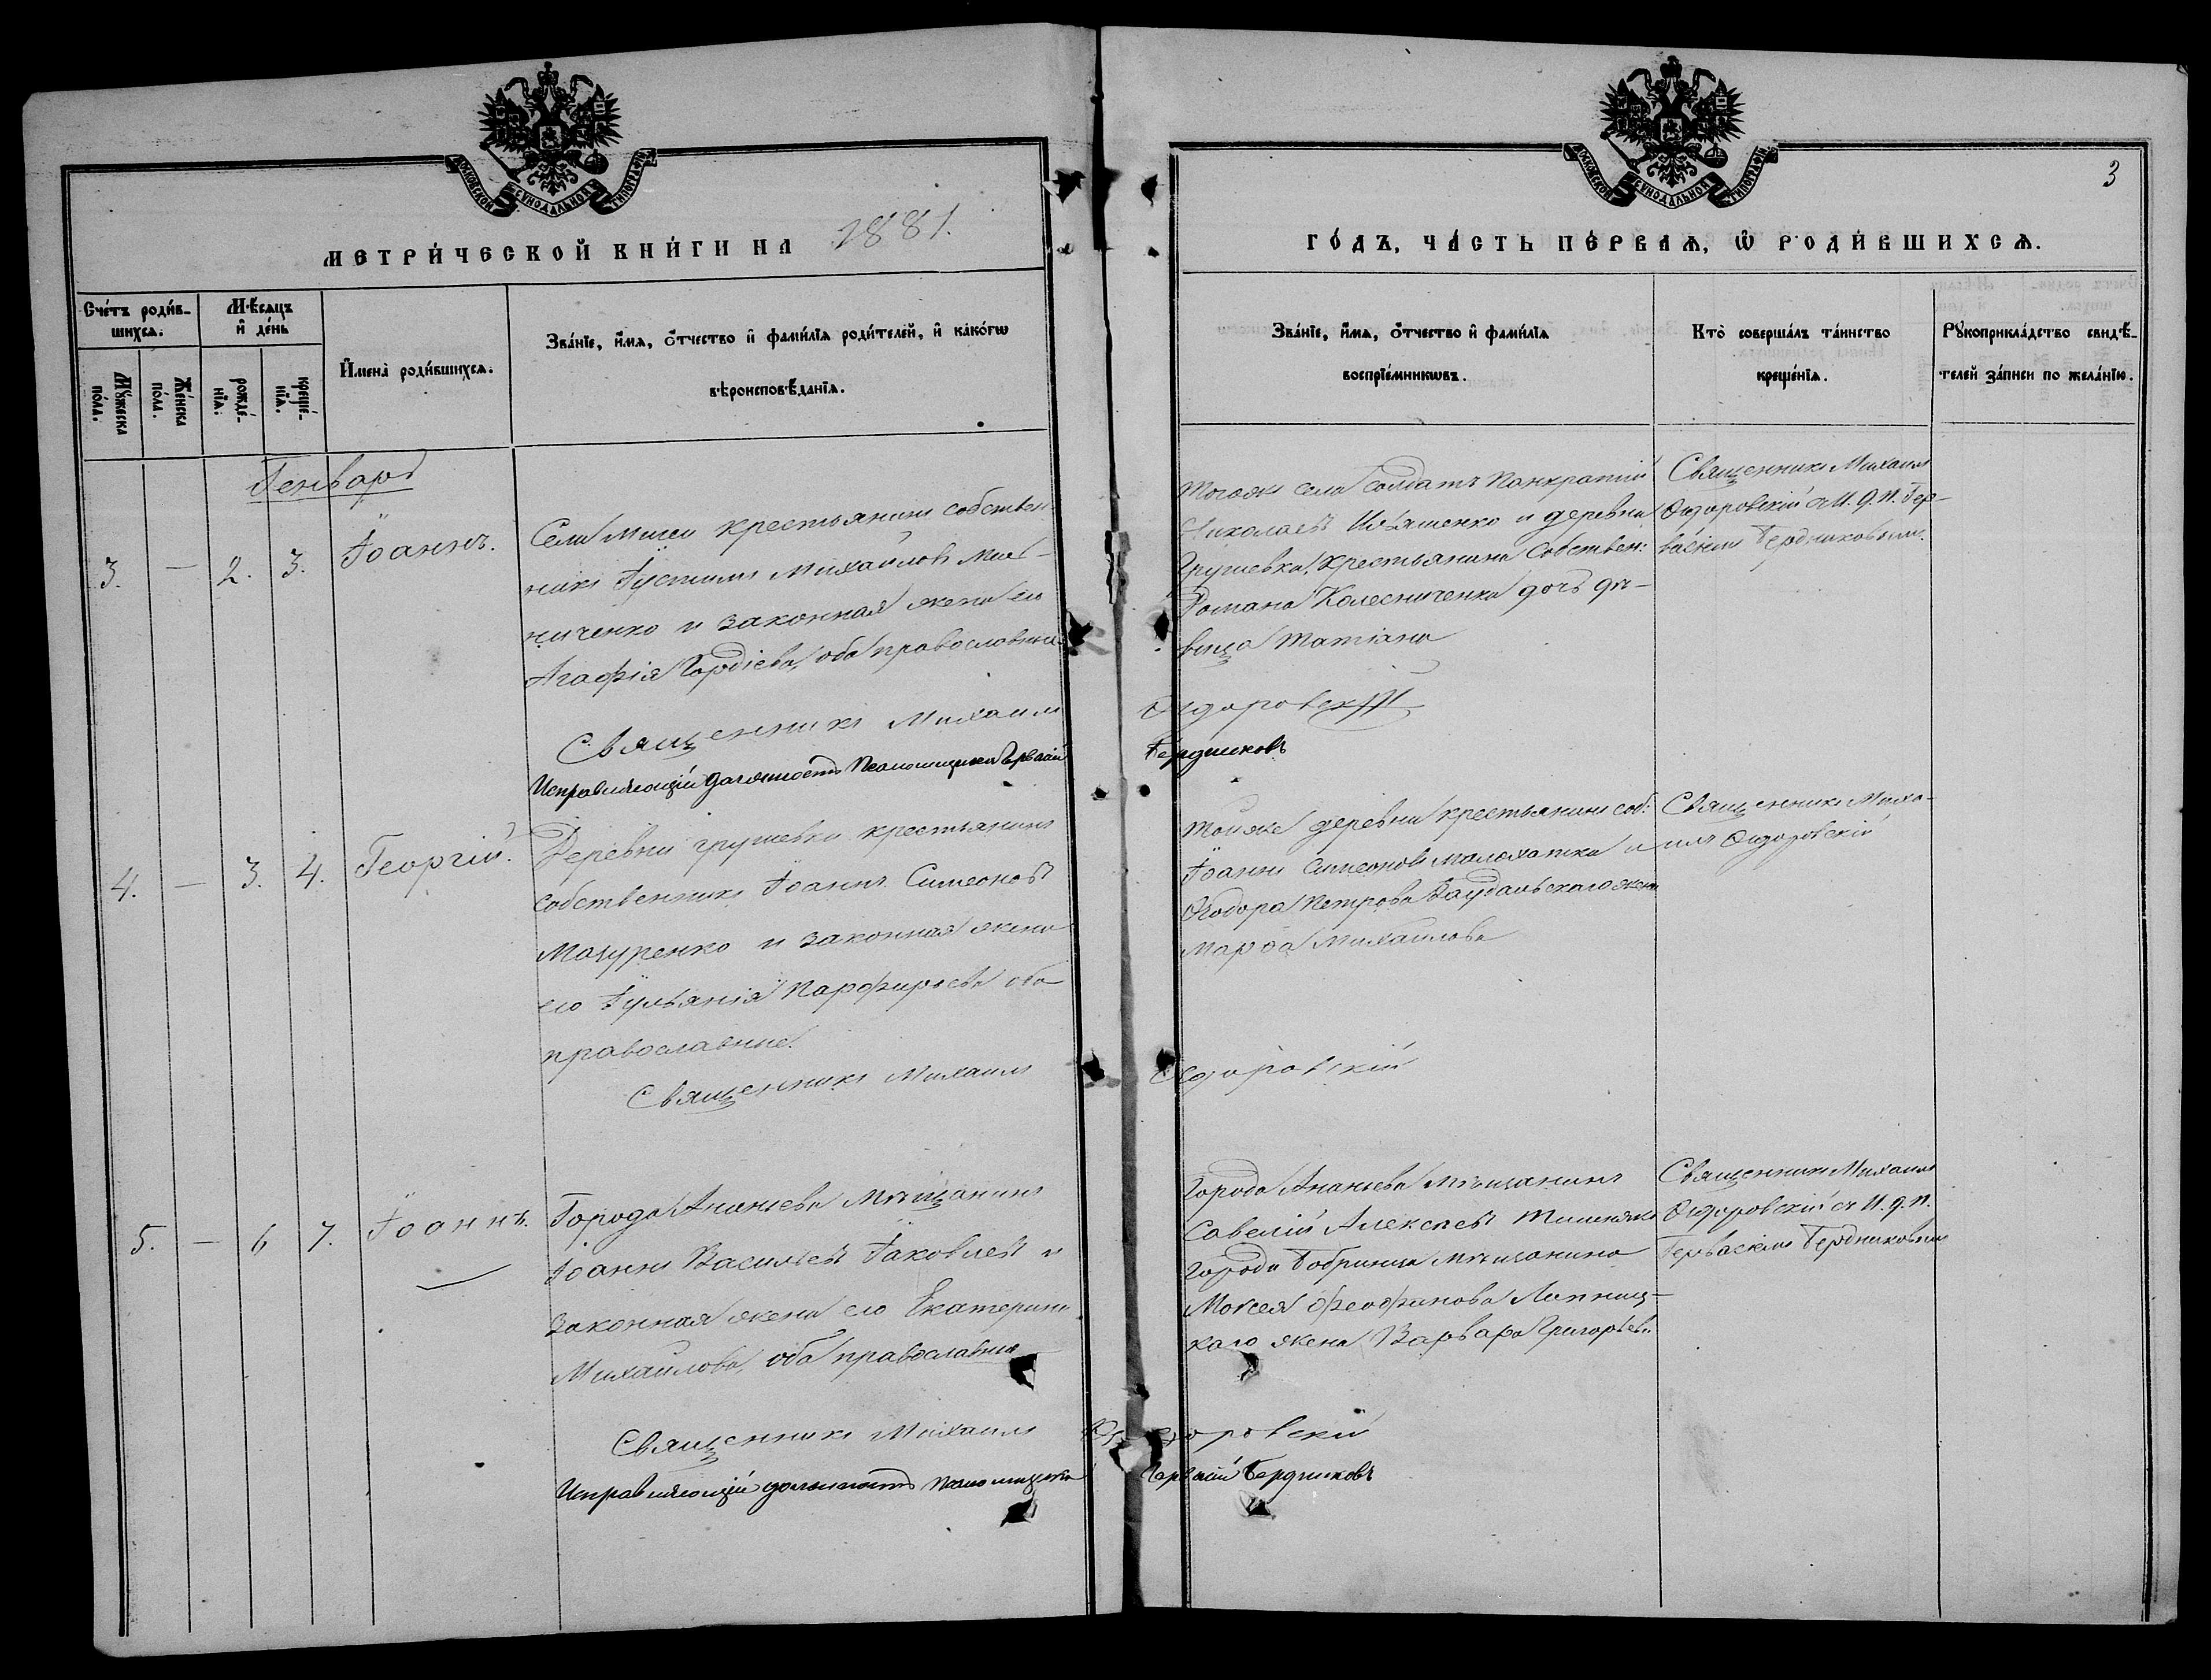 МОСКОВСКОЙ СѴНОДАЛЬНОЙ ТИПОГРАФІИ
МЕТРИ́ЧЕСКОЙ КНИ́ГИ НА 1881.
Сче́тъ роди́в-
шихсѧ.
Мꙋ́жеска
по́ла.
Же́нска
по́ла.
Мѣ́сѧцъ
и҆ де́нь
рожде́-
нїѧ.
креще́-
нїѧ.
И҆мена̀ роди́вшихсѧ.
Зва́нїе, и҆́мѧ, ѻ҆́тчество и҆ фамі́лїѧ роди́телей, и҆ како́гѡ
вѣроисповѣ́данїѧ.
Генварь
3. — 2. 3. Іоаннъ.
Села Мигеи крестьянинъ собствен-
никъ Іустинъ Михаиловъ Мель-
ниченко и законная жена его
Агафія Гордіева, оба православные
Священникъ Михаилъ
Исправляющій должность Псаломщика Гервасій
4. — 3. 4. Георгій.
Деревни Грушевки крестьянинъ
собственникъ Іоаннъ Симеоновъ
Мазуренко и законная жена
его Іуліанія Парфирьева оба
православные.
Священникъ Михаилъ
5. — 6 7. Іоаннъ.
Города Ананьева Мѣщанинъ
Іоаннъ Васильевъ Яковлевъ и
законная жена его Екатерина
Михаилова, оба православные
Священникъ Михаилъ
Исправляющій должность Псаломщика
МОСКОВСКОЙ СѴНОДАЛЬНОЙ ТИПОГРАФІИ
3
ГО́ДЪ, ЧА́СТЬ ПЕ́РВАѦ, Ѡ҆ РОДИ́ВШИХСѦ.
Зва́нїе, и҆́мѧ, ѻ҆́тчество и҆ фамі́лїѧ
воспрїе́мникѡвъ.
Кто̀ соверша́лъ та́инство
креще́нїѧ.
Рꙋкоприкла́дство свидѣ́-
телей за́писи по жела́нїю.
Тогоже села солдатъ Панкратій
Николаевъ Ильяшенко и деревни
Грушевки, крестьянина Собствен:
Романа Колесниченка дочь дѣ-
вица Татіана
Священникъ Михаилъ
Ѳедоровскій съ И. Д. П. Гер-
васіемъ Бердниковымъ.
Ѳедоровскій
Бердниковъ
Тойже деревни крестьянинъ соб:
Іоаннъ Симеоновъ Малохатка и
Ѳеодора Петрова жена
Марѳа Михаилова
Священникъ Миха-
илъ Ѳедоровскій
Ѳедоровскій
Города Ананьева мѣщанинъ
Савелій Алексѣевъ
Города Бобринца мѣщанина
Моѵсея Феофанова Липниц-
каго жена Варвара Григорьева
Священникъ Михаилъ
Ѳедоровскій съ И. д. П.
Гервасіемъ Бердниковымъ
Ѳедоровскій
Гервасій Бердниковъ